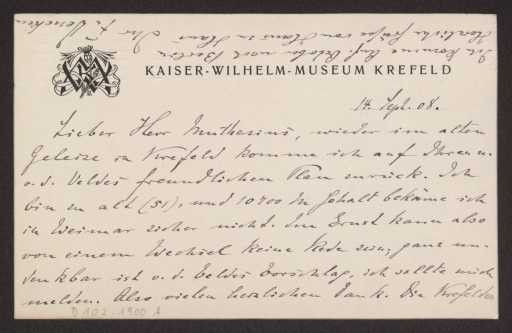 KAISER-WILHELM-MUSEUM KREFELD
14. Sept. 08.
Lieber Herr Muthesius, wieder im alten
Geleise in Krefeld komme ich auf Ihren u.
v. d. Veldes freundlichen Plan zurück. Ich
bin zu alt (51), und 10400 M Gehalt bekäme ich
in Weimar sicher nicht. Im Ernst kann also
von einem Wechsel keine Rede sein; ganz un-
denkbar ist v. d. Veldes Vorschlag, ich sollte mich
melden. Also vielen herzlichen Dank. Die Krefelder
Ich komme Anf. Oktober nach Berlin
Herzliche Grüße von Haus zu Haus Ihr F. Deneken
D 102-1900 A